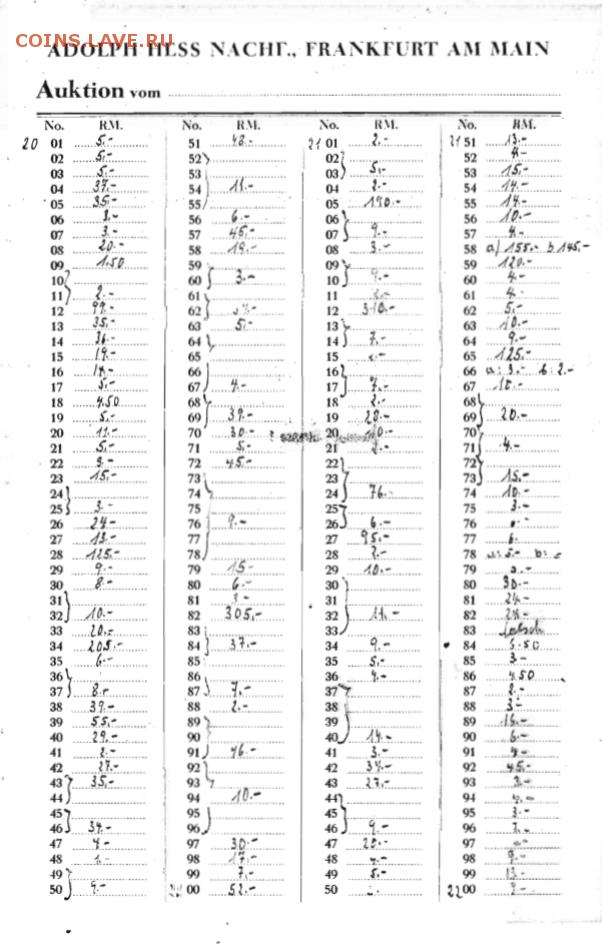 COINS.LAVE.RU
ADOLPH HESS NACHF., FRANKFURT AM MAIN
Auktion vom
No. R.M.
20 01 5.-
02 5.-
03 5.-
04 37.-
05 35.-
06
07 3.-
08 20.-
09 1.50
10
11 2.-
12 99.-
13 35.-
14 36.-
15 19.-
16 18.-
17 5.-
18 4.50
19 5.-
20 11.-
21 5.-
22 3.-
23 15.-
24
25 3.-
26 24.-
27 13.-
28 125.-
29 9.-
30 8.-
31
32 10.-
33 20.-
34 205.-
35 6.-
36
37 8.-
38 39.-
39 55.-
40 29.-
41 2.-
42 27.-
43 35.-
44
45
46 34.-
47 4.-
48 1.-
49
50 9.-
No. R.M.
51 48.-
52
53
54 11.-
55
56 6.-
57 45.-
58 19.-
59
60 3.-
61
62
63 5.-
64
65
66
67 4.-
68
69 39.-
70 30.-
71 5.-
72 45.-
73
74
75
76 9.-
77
78
79 15.-
80 6.-
81 3.-
82 305.-
83
84 37.-
85
86
87 7.-
88 2.-
89
90
91 46.-
92
93
94 10.-
95
96
97 30.-
98 17.-
99 7.-
00 52.-
No. R.M.
21 01 2.-
02
03 5.-
04 2.-
05 190.-
06
07 9.-
08 3.-
09
10 9.-
11
12 310.-
13
14 7.-
15
16
17 7.-
18 2.-
19 28.-
20
21
22
23
24 76.-
25
26 6.-
27 95.-
28 2.-
29 10.-
30
31
32 11.-
33
34 9.-
35 5.-
36 4.-
37
38
39
40 14.-
41 3.-
42 34.-
43 27.-
44
45
46 9.-
47 25.-
48
49 5.-
50
No. R.M.
21 51 13.-
52 4.-
53 15.-
54 14.-
55 14.-
56 10.-
57 4.-
58 a) 155.- b. 145.-
59 120.-
60 4.-
61 4.-
62 5.-
63 10.-
64 9.-
65 125.-
66 a: 3.- b: 2.-
67 10.-
68
69 20.-
70
71 4.-
72
73 15.-
74 10.-
75 3.-
76
77 6.-
78 a: 5.- b:
79
80 30.-
81 24.-
82 28.-
83 falsch
84 5.50
85 3.-
86 4.50
87 2.-
88 3.-
89 16.-
90 6.-
91 4.-
92 45.-
93
94
95 3.-
96
97
98 9.-
99 13.-
22 00